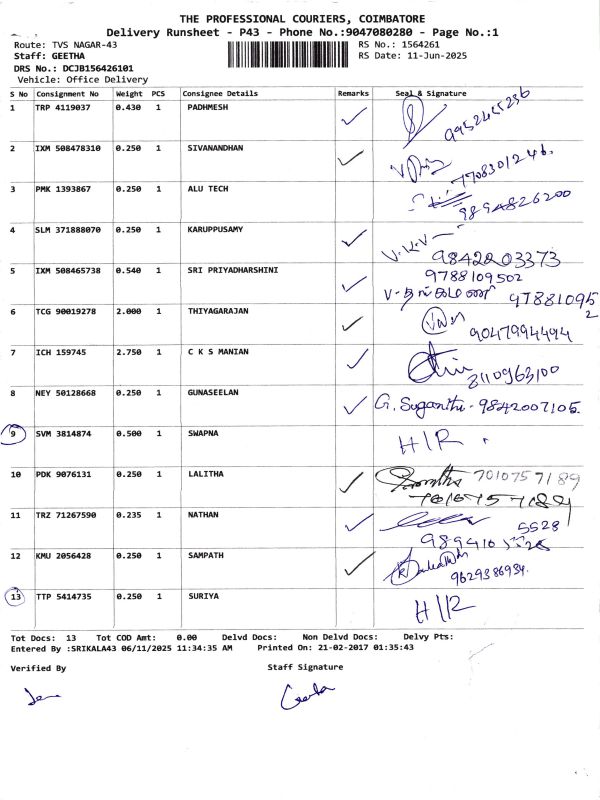 THE PROFESSIONAL COURIERS, COIMBATORE
Delivery Runsheet - P43 - Phone No.:9047080280 - Page No.:1
Route: TVS NAGAR-43 RS No.: 1564261
Staff: GEETHA RS Date: 11-Jun-2025
DRS No.: DCJB156426101
Vehicle: Office Delivery
S No Consignment No Weight PCS Consignee Details Remarks Seal & Signature
1 TRP 4119037 0.430 1 PADHMESH ✓ 9952455236
2 IXM 508478310 0.250 1 SIVANANDHAN ✓ 7708301246.
3 PMK 1393867 0.250 1 ALU TECH 9894826200
4 SLM 371888070 0.250 1 KARUPPUSAMY ✓ V.K.V 9842203373
5 IXM 508465738 0.540 1 SRI PRIYADHARSHINI ✓ 9788109502
V-தங்கமணி 978810952
6 TCG 90019278 2.000 1 THIYAGARAJAN ✓ 9047994494
7 ICH 159745 2.750 1 C K S MANIAN ✓ 8110963100
8 NEY 50128668 0.250 1 GUNASEELAN ✓ G. Suganthi - 9842007105.
9 SVM 3814874 0.500 1 SWAPNA H/R
10 PDK 9076131 0.250 1 LALITHA ✓ 7010757189
7010757189
11 TRZ 71267590 0.235 1 NATHAN ✓ 5528
9894105528
12 KMU 2056428 0.250 1 SAMPATH ✓ 9629386934.
13 TTP 5414735 0.250 1 SURIYA H/R
Tot Docs: 13 Tot COD Amt: 0.00 Delvd Docs: Non Delvd Docs: Delvy Pts:
Entered By :SRIKALA43 06/11/2025 11:34:35 AM Printed On: 21-02-2017 01:35:43
Verified By Staff Signature
Geetha